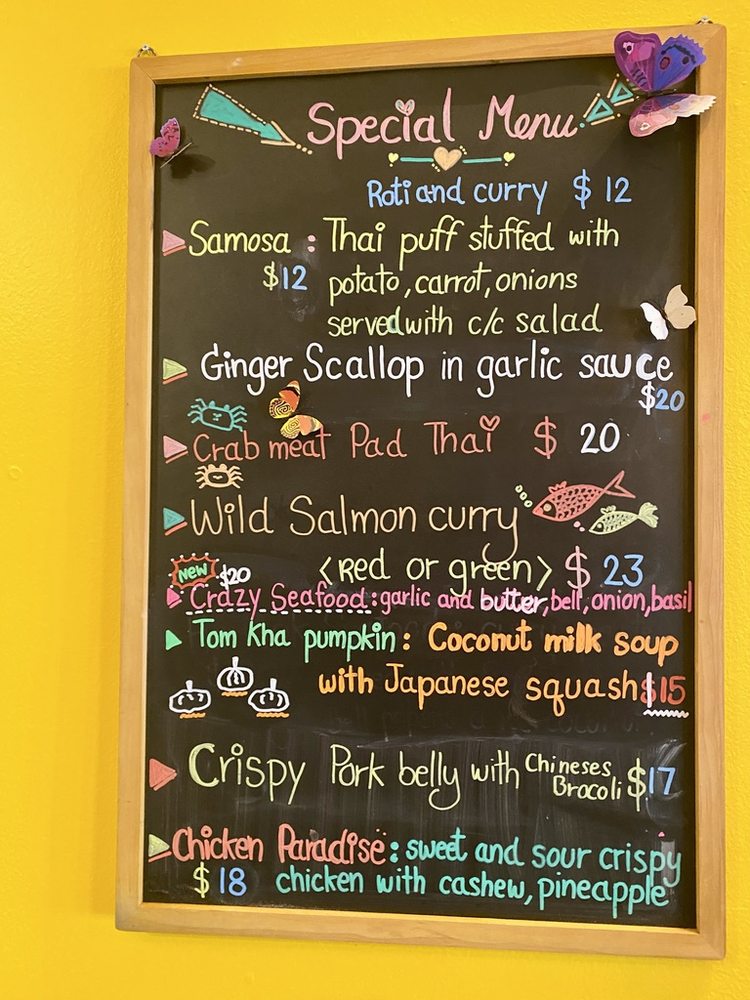 Special Menu
Roti and curry $ 12
Samosa : Thai puff stuffed with
$12 potato, carrot, onions
served with c/c salad
Ginger Scallop in garlic sauce
$20
Crab meat Pad Thai $ 20
Wild Salmon curry
<Red or green> $ 23
NEW $20
Crazy Seafood : garlic and butter, bell, onion, basil
Tom Kha pumpkin : Coconut milk soup
with Japanese squash $15
Crispy Pork belly with Chineses
Brocoli $17
Chicken Paradise : sweet and sour crispy
$ 18 chicken with cashew, pineapple